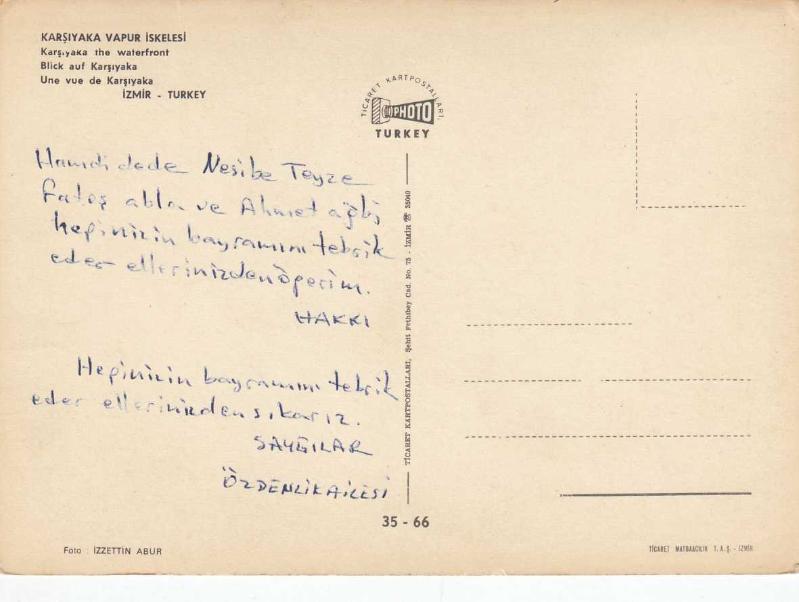 KARŞIYAKA VAPUR İSKELESİ
Karşıyaka the waterfront
Blick auf Karşıyaka
Une vue de Karşıyaka
İZMİR - TURKEY
TİCARET KARTPOSTALLARI,
PHOTO
TURKEY
Hamdi dede Nesibe Teyze
Fatoş abla ve Ahmet ağbi
hepinizin bayramını tebrik
eder ellerinizden öperim.
HAKKI
Hepinizin bayramını tebrik
eder ellerinizden sıkarız.
SAYGILAR
ÖZDENLİK AİLESİ
TİCARET KARTPOSTALLARI, Şehit Fethibey Cad. No. 75 - İZMİR ☎ 35040
35 - 66
Foto : İZZETTİN ABUR
TİCARET MATBAACILIK T. A. Ş. - İZMİR